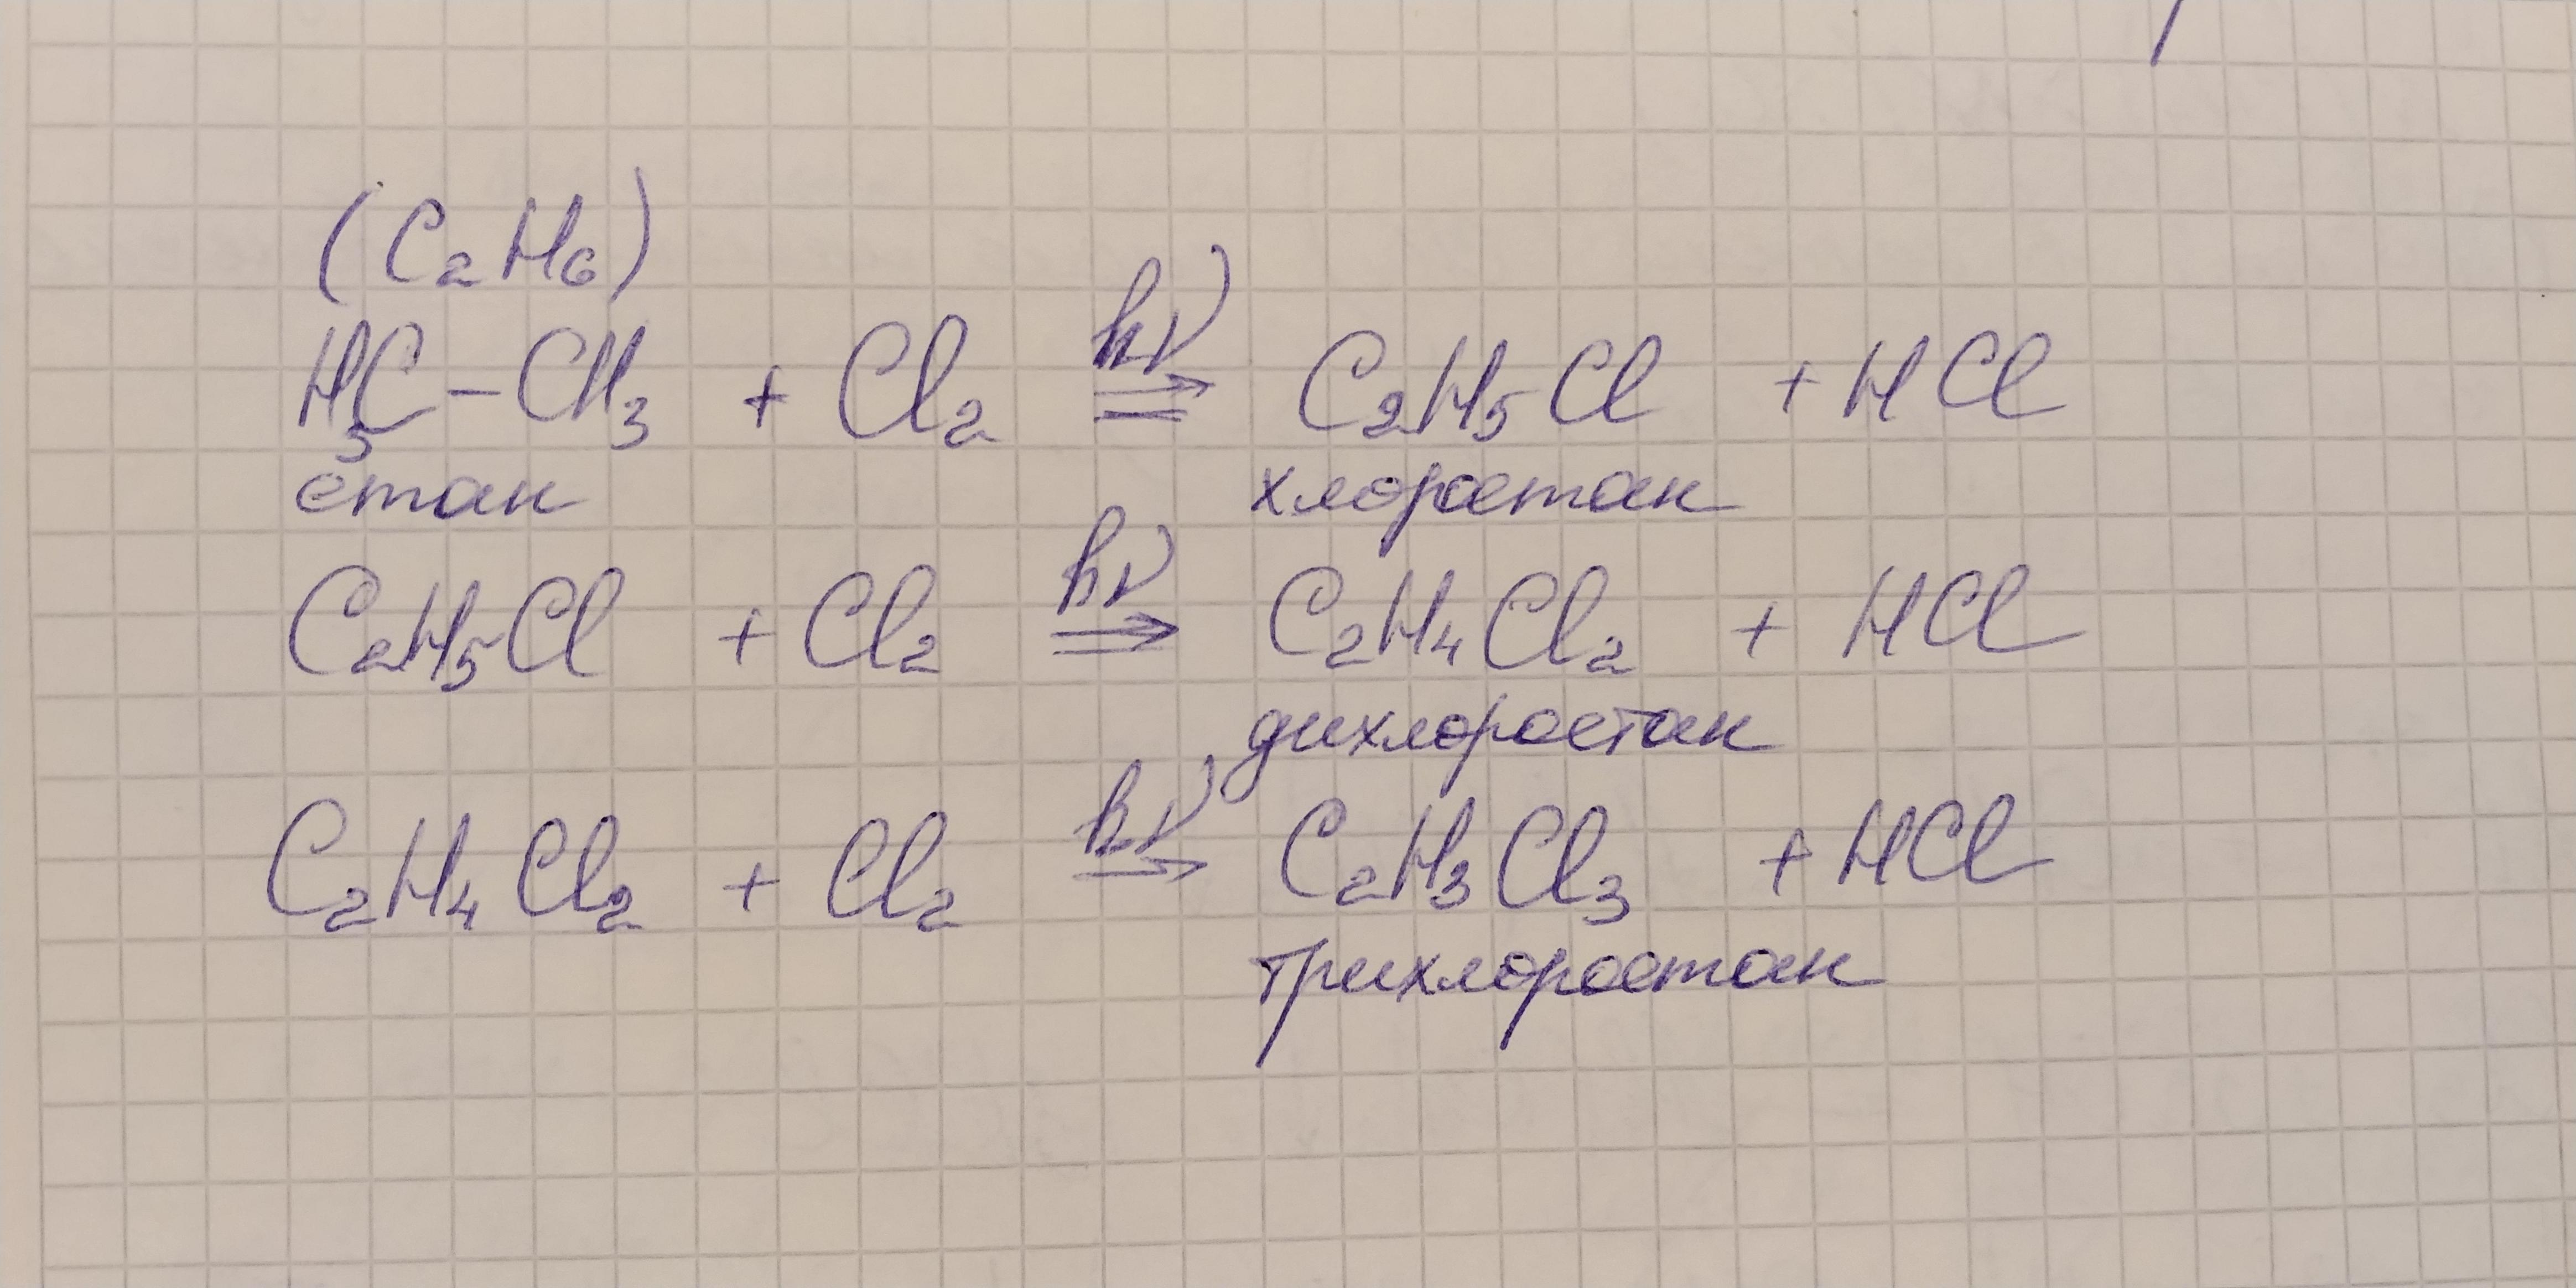 (C₂H₆)
H₃C – CH₃ + Cl₂ hν ⇒ C₂H₅Cl + HCl
етан хлороетан
C₂H₅Cl + Cl₂ hν ⇒ C₂H₄Cl₂ + HCl
дихлороетан
C₂H₄Cl₂ + Cl₂ hν ⇒ C₂H₃Cl₃ + HCl
трихлороетан